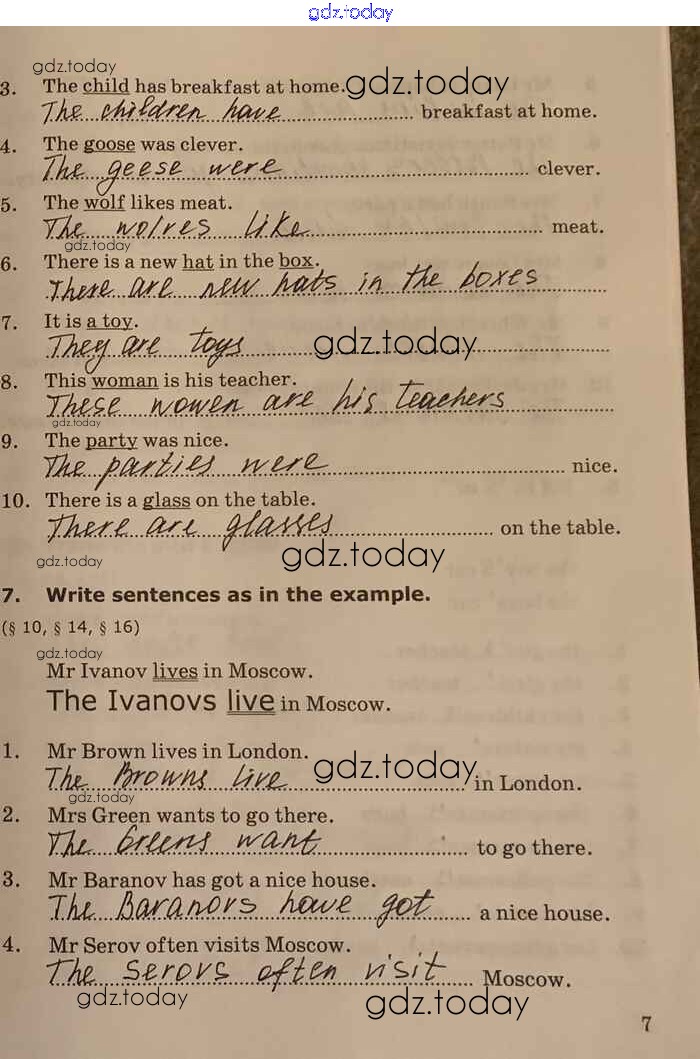 gdz.today
gdz.today
3. The child has breakfast at home. gdz.today
The children have breakfast at home.
4. The goose was clever.
The geese were clever.
5. The wolf likes meat.
The wolves like meat.
gdz.today
6. There is a new hat in the box.
There are new hats in the boxes
7. It is a toy.
They are toys gdz.today
8. This woman is his teacher.
These women are his teachers
gdz.today
9. The party was nice.
The parties were nice.
10. There is a glass on the table.
There are glasses on the table.
gdz.today gdz.today
7. Write sentences as in the example.
(§ 10, § 14, § 16)
gdz.today
Mr Ivanov lives in Moscow.
The Ivanovs live in Moscow.
1. Mr Brown lives in London.
The Browns live gdz.today in London.
gdz.today
2. Mrs Green wants to go there.
The Greens want to go there.
3. Mr Baranov has got a nice house.
The Baranovs have got a nice house.
4. Mr Serov often visits Moscow.
The Serovs often visit Moscow.
gdz.today gdz.today
7